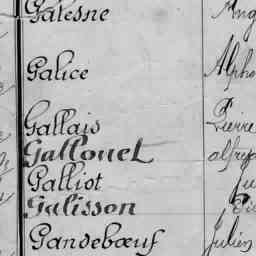 Galesne Aug
Galice Alpho
Gallais Pierre
Gallouet alfre
Galliot Ju
Galisson
Gandebœuf Julien